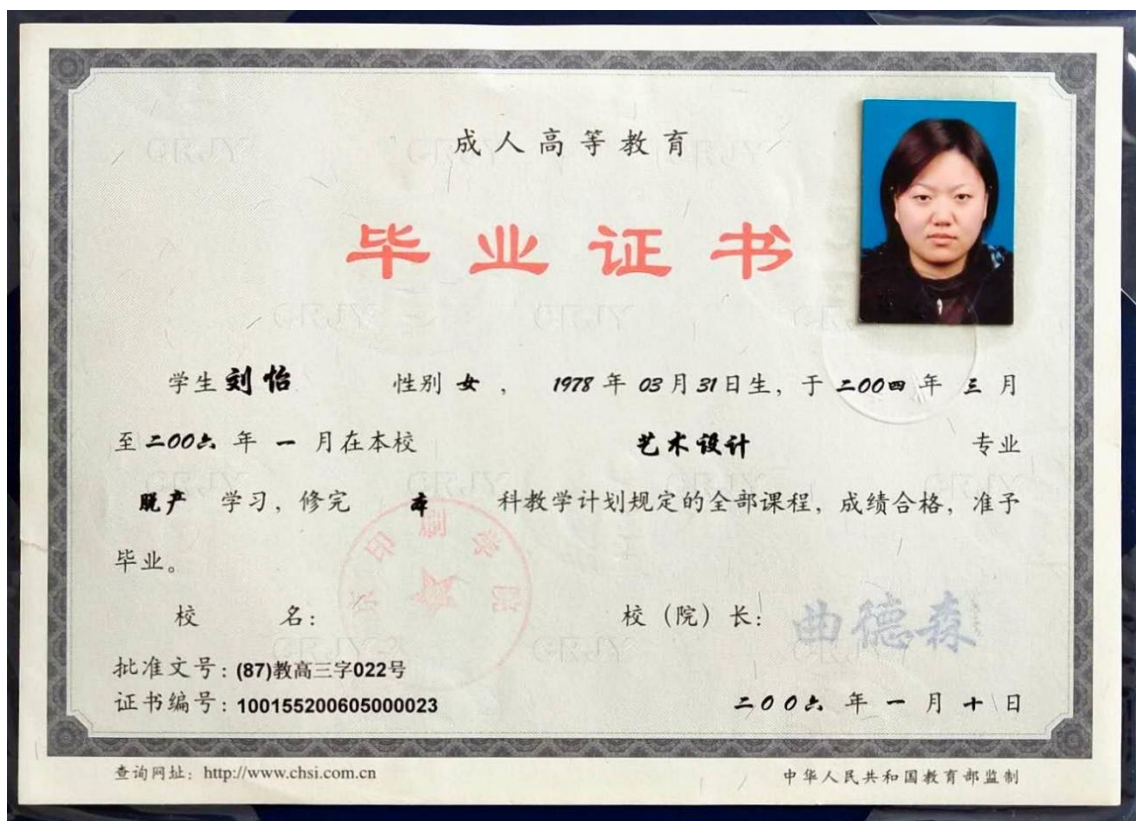 成人高等教育
毕业证书
学生 刘怡 性别 女 ， 1978 年 03 月 31 日生，于 二00四 年 三 月
至 二00六 年 一 月在本校 艺术设计 专业
脱产 学习，修完 本 科教学计划规定的全部课程，成绩合格，准予
毕业。
印刷学院
校 名： 校（院）长： 曲德森
批准文号：(87)教高三字022号
证书编号：100155200605000023 二00六 年 一 月 十 日
查询网址：http://www.chsi.com.cn 中华人民共和国教育部监制
QRJY